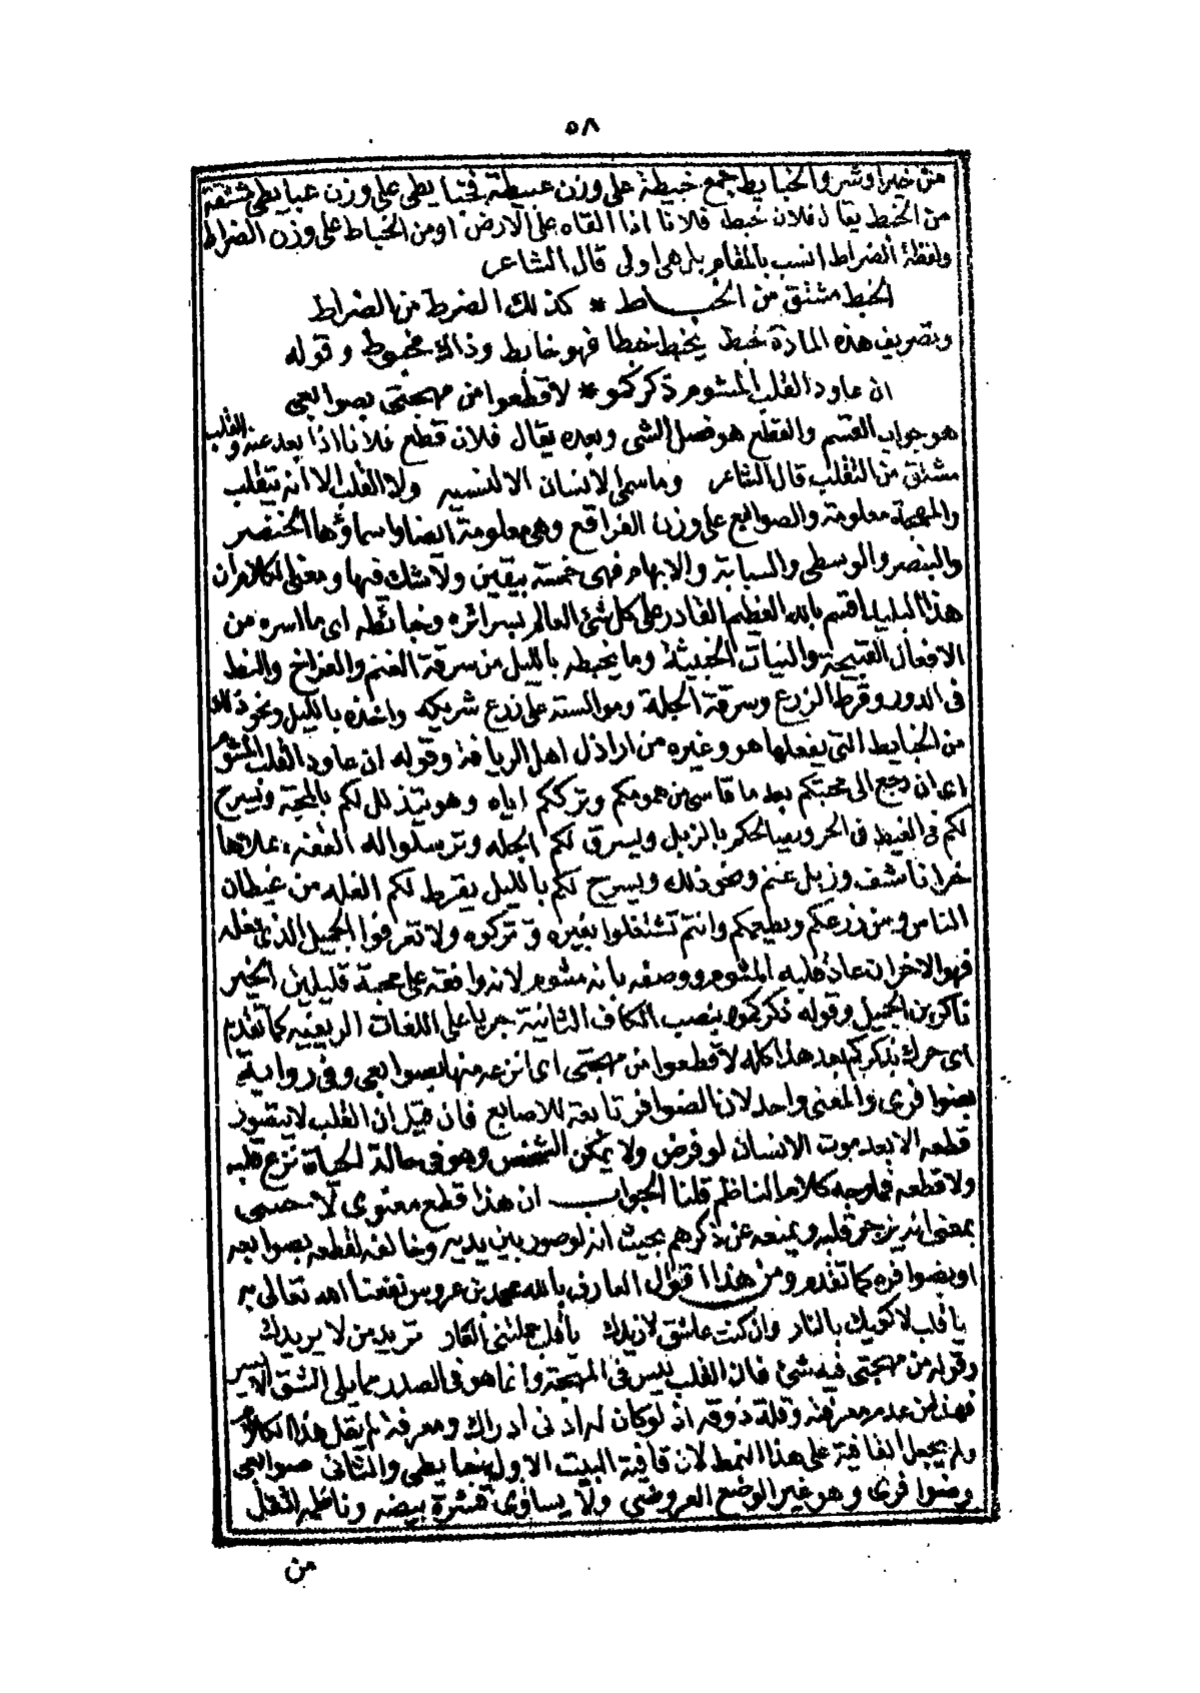 ٥٨
من خير او شر والخبايط جمع خبيطة على وزن عبيطة فخبايطي على وزن عبايطي مشتقة
من الخبط يقال فلان خبط فلانا اذا القاه على الارض او من الخباط على وزن الضراط
ولفظة الضراط انسب بالمقام بل هى اولى قال الشاعر
الخبط مشتق من الخباط * كذلك الضرط من الضراط
وتصريف هذه المادة خبط يخبط خبطا فهو خابط وذاك مخبوط وقوله
ان عاود القلب المشوم ذكركمو * لاقطعوا من مهجتي بصوابعي
هو جواب القسم والقطع هو فصل الشى وبعده يقال فلان قطع فلانا اذا بعد عنه والقلب
مشتق من التقلب قال الشاعر وما سمى الانسان الا لنسيه ولا القلب الا انه يتقلب
والمهجة معلومة والصوابع على وزن الفراقع وهى معلومة ايضا واسماؤها الخنصر
والبنصر والوسطى والسبابة والابهام فهى خمسة بيقين ولا شك فيها ومعنى الكلام ان
هذا البليد اقسم بالله العظيم القادر على كل شئ العالم بسرائره وخبائطه اى ما اسره من
الافعال القبيحة والنيات الخبيثة وما يخبطه بالليل من سرقة الغنم والفراخ والنط
فى الدور وقرط الزرع وسرقة الجلة وموالسته على زرع شريكه واخذه بالليل ونحو ذلك
من الخبايط التى يفعلها هو وغيره من اراذل اهل الريافة وقوله ان عاود القلب المشوم
اى ان رجع الى محبتكم بعد ما قاسى من همومكم وترككم اياه وهو يتذلل لكم بالمحبة ويسرح
لكم فى الغيط فى الحر ويصالحكم بالزبل ويسرق لكم الجله وترسلوا له القفه يملاها
خرا ناشف وزبل غنم ونحو ذلك ويسرح لكم بالليل يقرط لكم الغله من غيطان
الناس ومن زرعكم وبطيخكم وانتم تشتغلوا بغيره وتتركوه ولا تعرفوا الجميل الذى يفعله
فهو الاخر ان عاد قلبه المشوم ووصفه بانه مشوم لانه وافقه على محبة قليلين الخير
ناكرين الجميل وقوله ذكركمو بنصب الكاف الثانية جريا على اللغات الريفيه كما تقدم
اى حرك بذكركم بعد هذا كله لاقطعوا من مهجتى اى انزعه منها بصوابعى وفى رواية
بضوافرى والمعنى واحد لان الضوافر تابعة للاصابع فان قيل ان القلب لا يتصور
قطعه الا بعد موت الانسان لو فرض ولا يمكن الشخص وهو فى حالة الحياة نزع قلبه
ولا قطعه فما وجه كلام الناظم قلنا الجواب ان هذا قطع معنوى لا حسى
بمعنى انه يزجر قلبه ويمنعه عن ذكرهم بحيث انه لو صور بين يديه وخالفه لقطعه بصوابعه
او بضوافره كما تقدم ومن هذا اقوال العارف بالله محمد بن عروس نفعنا الله تعالى به
يا قلب لاكويك بالنار وان كنت عاشق لازيدك يا قلب حملتنى العار تريد من لا يريدك
وقوله من مهجتى فيه شئ فان القلب ليس فى المهجة وانما هو فى الصدر مما يلى الشق الايسر
فهذا من عدم معرفته وقلة ذوقه اذ لو كان له ادنى ادراك ومعرفة لم يقل هذا الكلام
ولم يجعل القافية على هذا النمط لان قافية البيت الاول خبايطى والثانى صوابعى
وضوافرى وهو غير الوضع العروضى ولا يساوى قشرة بيضه وناظمه اثقل
من